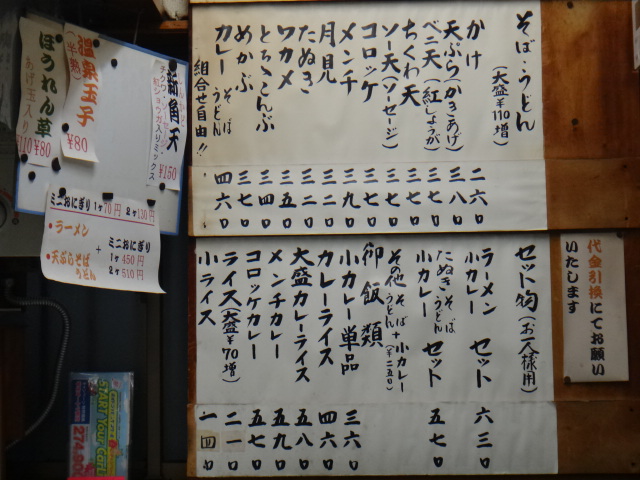 そば・うどん
(大盛¥110増)
かけ 二六〇
天ぷら(かきあげ) 三八〇
ベニ天(紅しょうが) 三七〇
ちくわ天 三七〇
ソー天(ソーセージ) 三七〇
コロッケ 三七〇
メンチ 三九〇
月見 三二〇
たぬき 三二〇
ワカメ 三五〇
とろろこんぶ 三四〇
めかぶ 三七〇
カレー そば うどん 四六〇
組合せ自由!!
代金引換にてお願い
いたします
セット物(お一人様用)
ラーメン
小カレー セット 六三〇
たぬき そば・うどん
小カレー セット 五七〇
その他 そば・うどん+小カレー(¥二五〇)
御飯類
小カレー単品 三六〇
カレーライス 四六〇
大盛カレーライス 五八〇
メンチカレー 五九〇
コロッケカレー 五七〇
ライス(大盛¥70増) 二一〇
小ライス 一四〇
新角天
紅ショウガ入りミックス
¥150
温泉玉子
(半熟)
¥80
ほうれん草
¥80
あげ玉入り
110
ミニおにぎり 1ヶ70円 2ヶ130円
・ラーメン
・天ぷらそば
うどん
+
ミニおにぎり
1ヶ 450円
2ヶ 510円
START YOUR
274,90